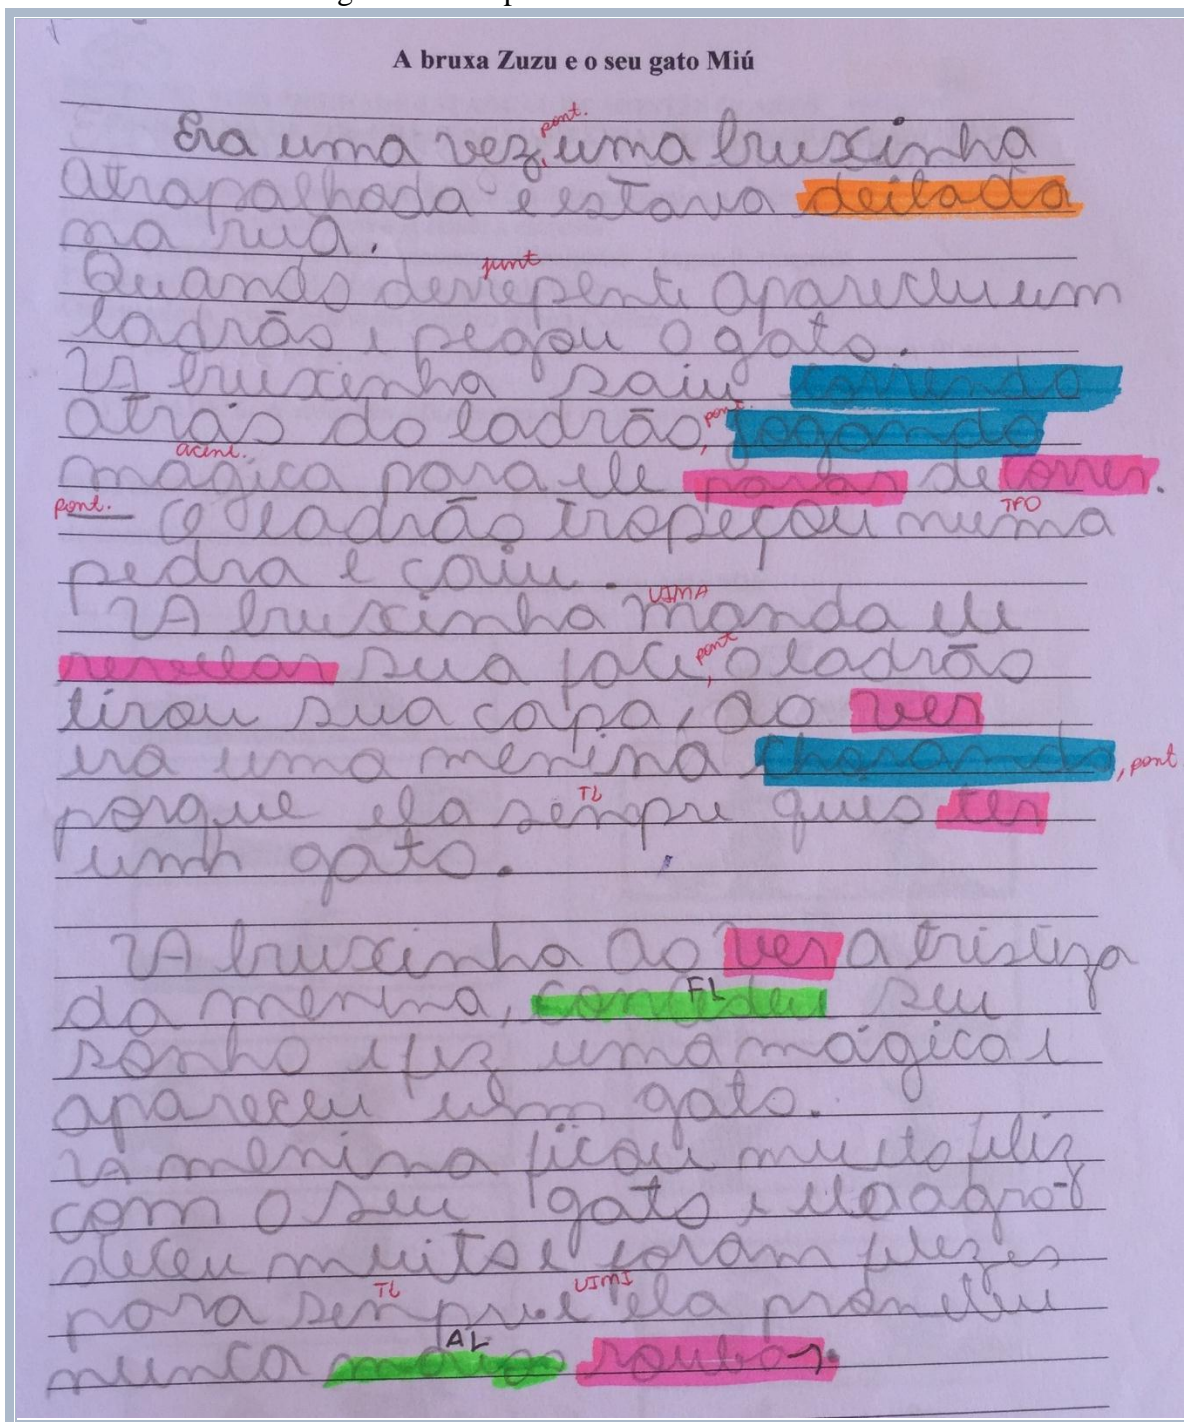 A bruxa Zuzu e o seu gato Miú
pont.
Era uma vez, uma bruxinha
atrapalhada e estava deitada
na rua.
pont
Quando derrepente apareceu um
ladrão e pegou o gato.
A bruxinha saiu correndo
pont.
atrás do ladrão, jogando
acent.
mágica para ele parar de correr.
pont. TFO
O ladrão tropeçou numa
pedra e caiu.
UIMA
A bruxinha manda ele
pont
revelar sua face, o ladrão
tirou sua capa, ao ver
era uma menina chorando, pont
TL
porque ela senpre quis ter
um gato.
A bruxinha ao ver a tristeza
FL
da menina, concedeu seu
sonho e fez uma mágica e
apareceu um gato.
A menina ficou muito feliz
com o seu gato e ela agra-
deceu muito e foram felizes
TL UIMI
para senpre.e ela prometeu
AL
nunca roubar.